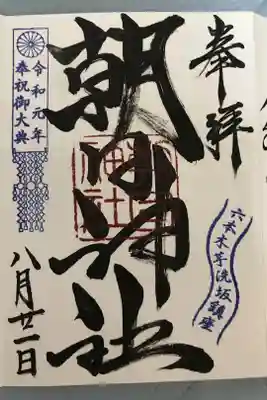 奉拝
六本木芋洗坂鎮座
朝日神社
令和元年
奉祝御大典
八月廿一日